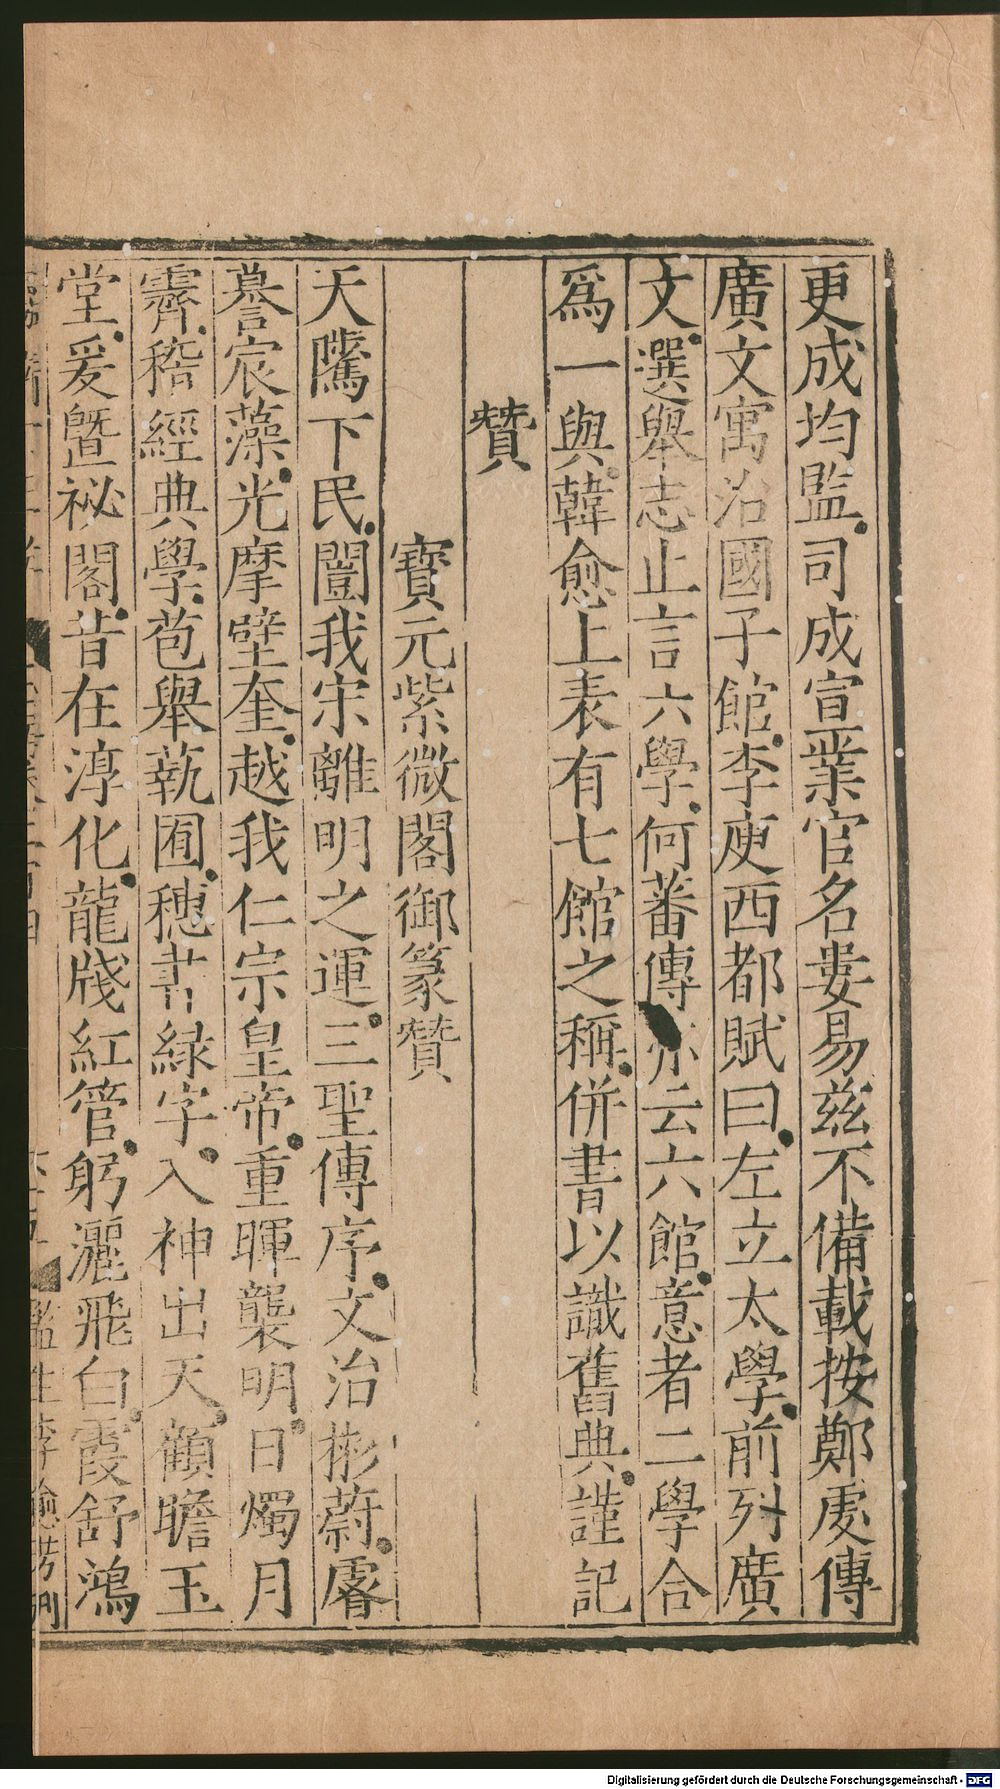 更成均監司成宣業官名婁易兹不備載按鄭䖍傳
廣文寓治國子館李庾西都賦曰左立太學前列廣
文選舉志止言六學何蕃傳亦云六館意者二學合
爲一與韓愈上表有七館之稱併書以識舊典謹記
贊
寶元紫微閣御篆贊
天騭下民闓我宋離明之運三聖傳序文治彬蔚睿
謩宸藻光摩壁奎越我仁宗皇帝重暉襲明日燭月
霽稽經典學苞舉蓺囿穗書緑字入神出天顧瞻玉
堂爰曁祕閣昔在淳化龍牋紅管躬灑飛白霞舒鴻
Digitalisierung gefördert durch die Deutsche Forschungsgemeinschaft - DFG